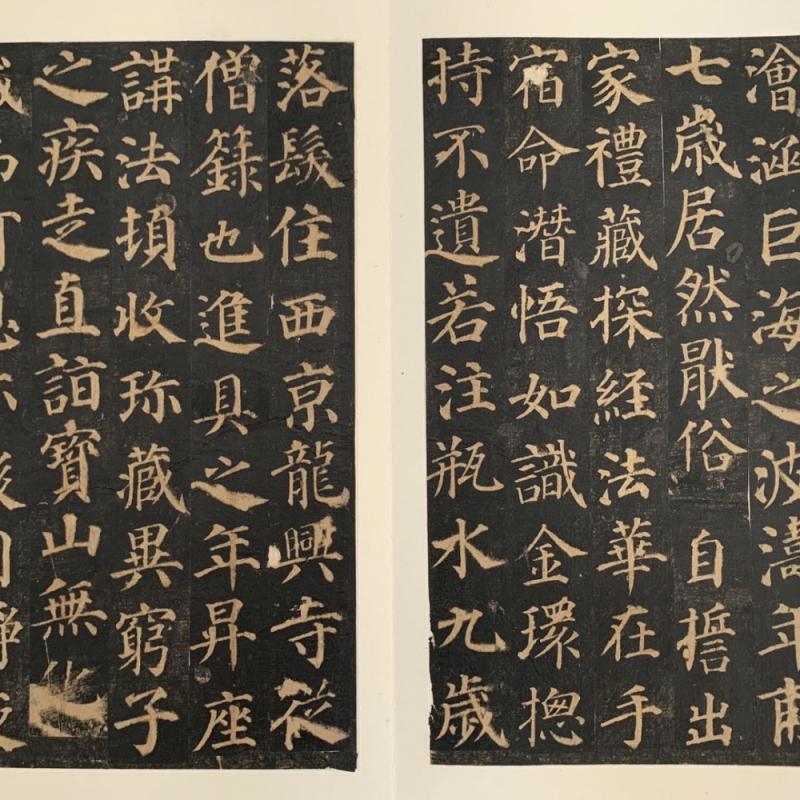 澮涵巨海之波濤年甫
七歲居然猒俗自誓出
家禮藏探經法華在手
宿命潛悟如識金環摠
持不遺若注瓶水九歲
落髮住西京龍興寺從
僧籙也進具之年昇座
講法頓收珎藏異窮子
之疾走直詣寶山無化